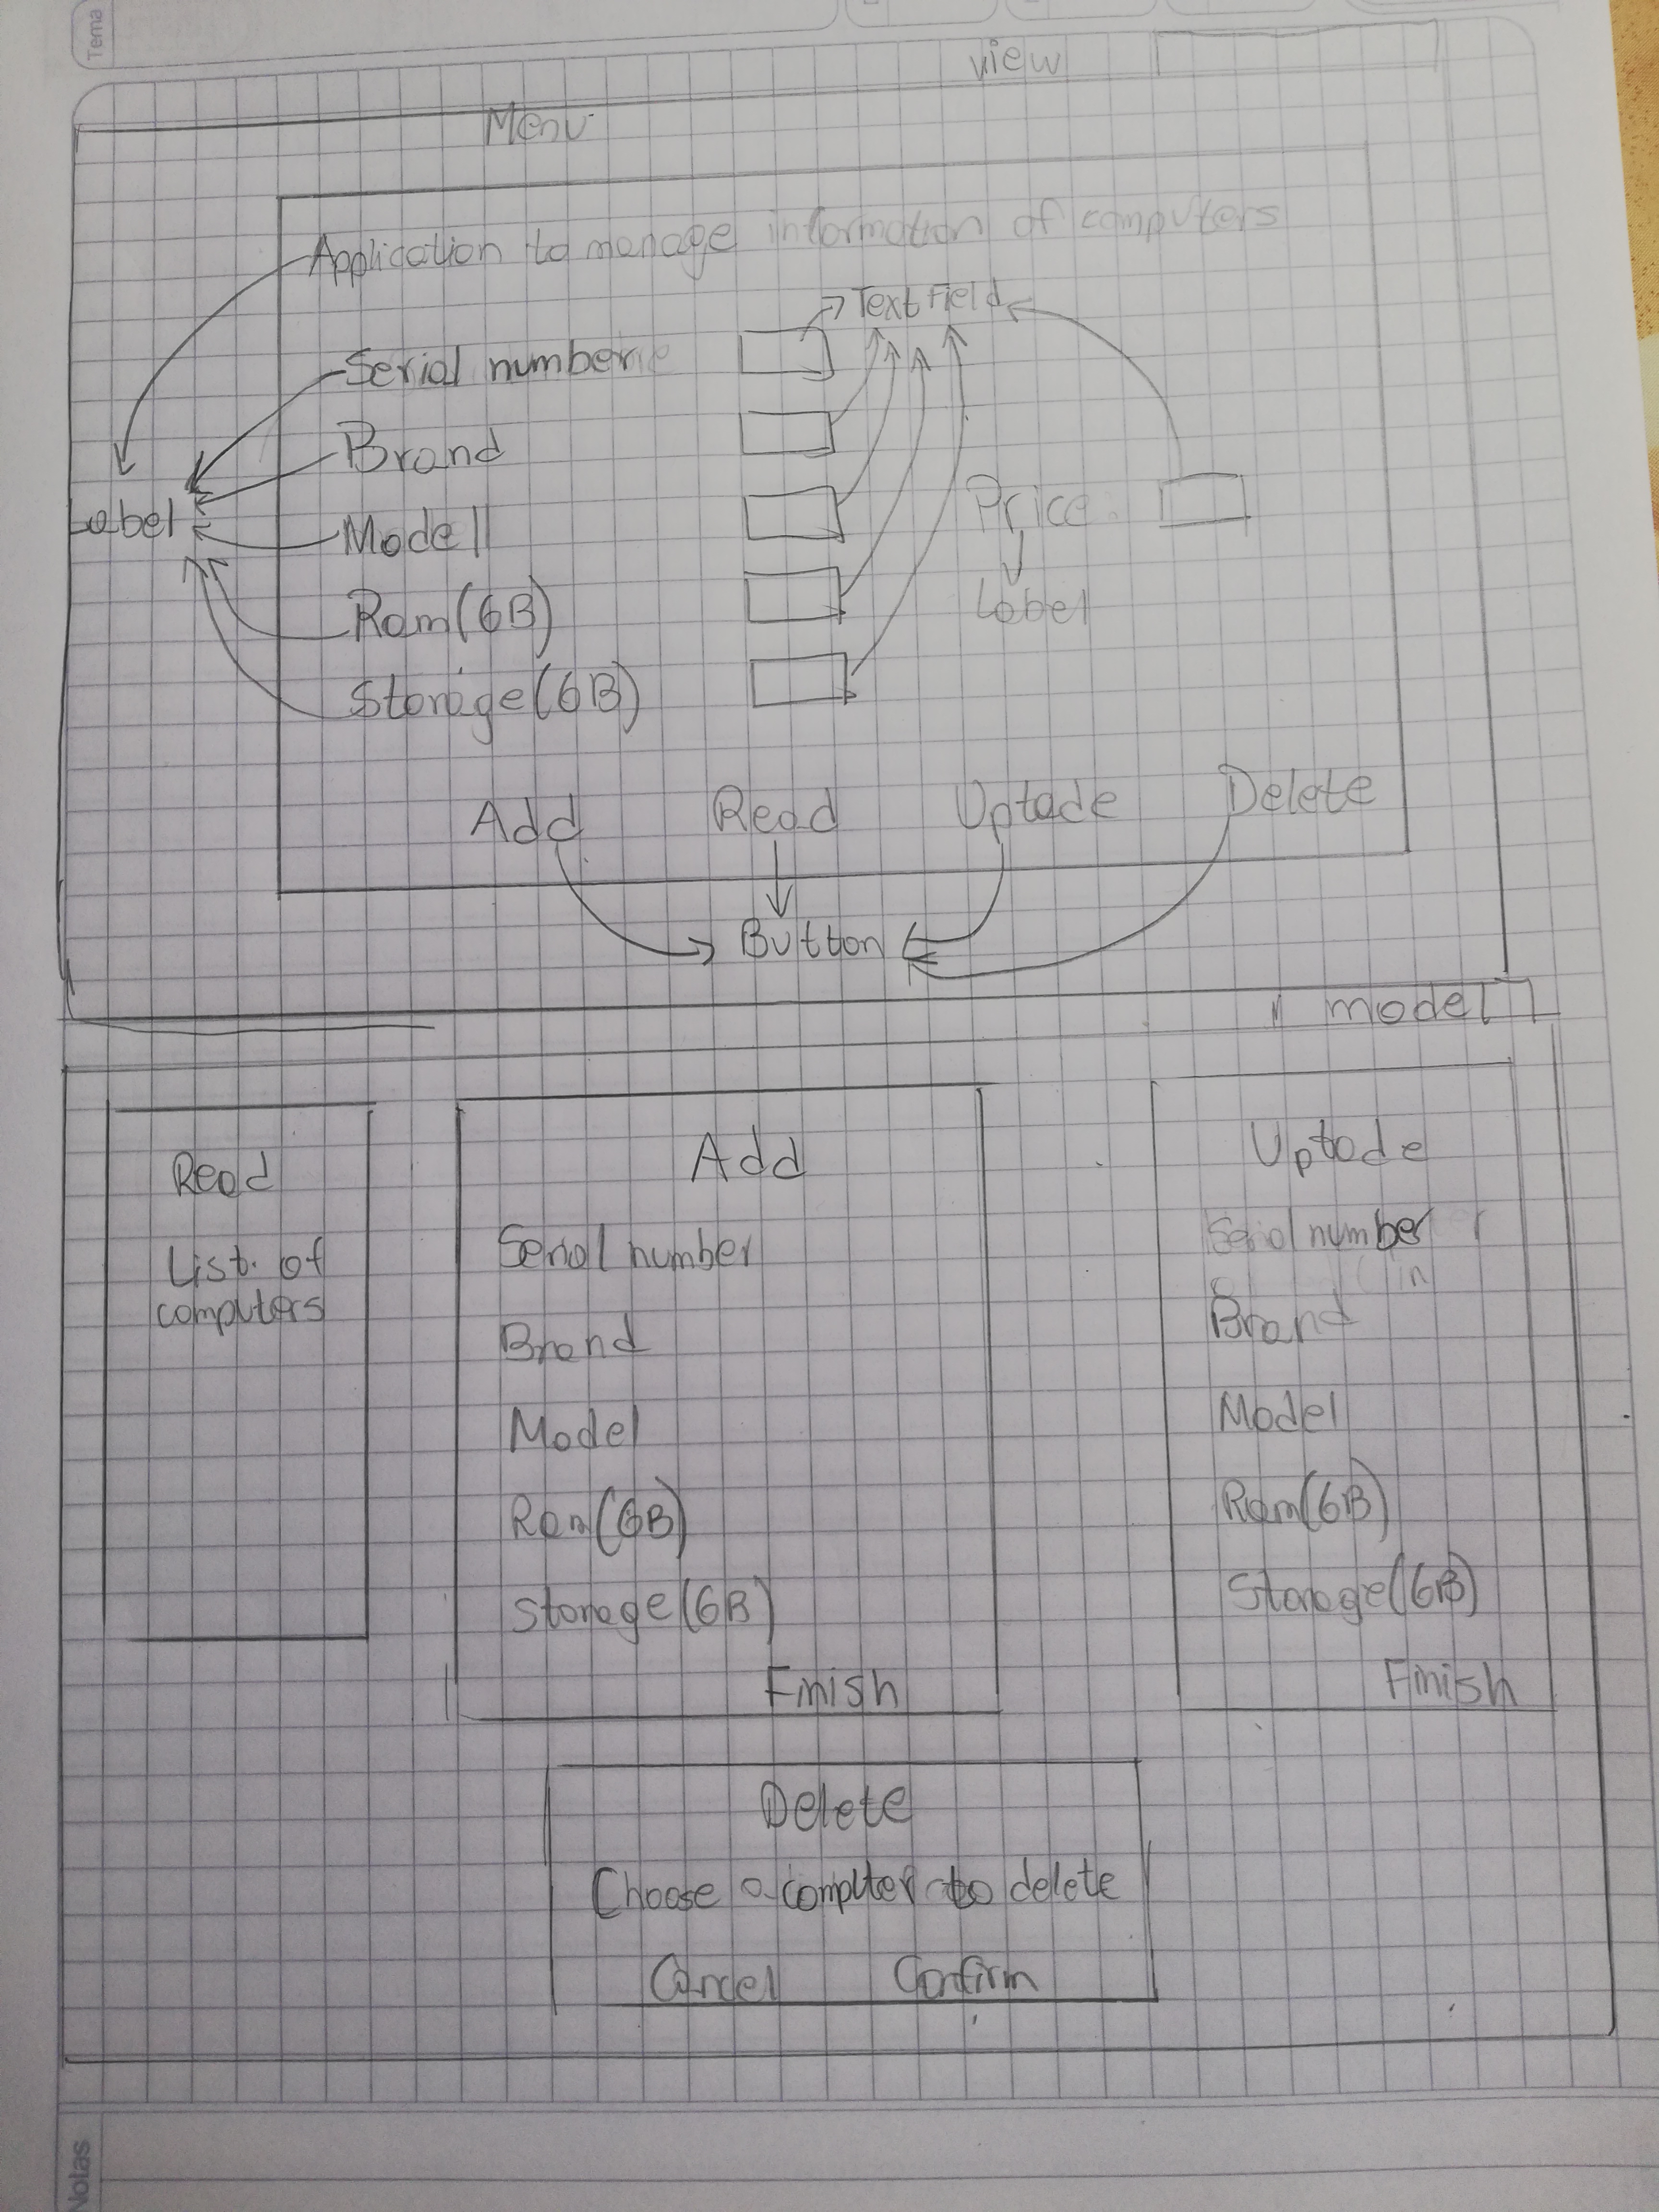 Tema
view
Menu
Application to manage information of computers
TextField
Serial number
Brand
Label
Modell
Price:
Ram(GB)
Label
Storage(GB)
Add Read Uptade Delete
Button
model
Read
List of
computers
Add
Serial number
Brand
Model
Ram(GB)
Storage(GB)
Finish
Uptade
Serial number
Brand
Model
Ram(GB)
Storage(GB)
Finish
Delete
Choose a computer to delete
Cancel Confirm
Notas